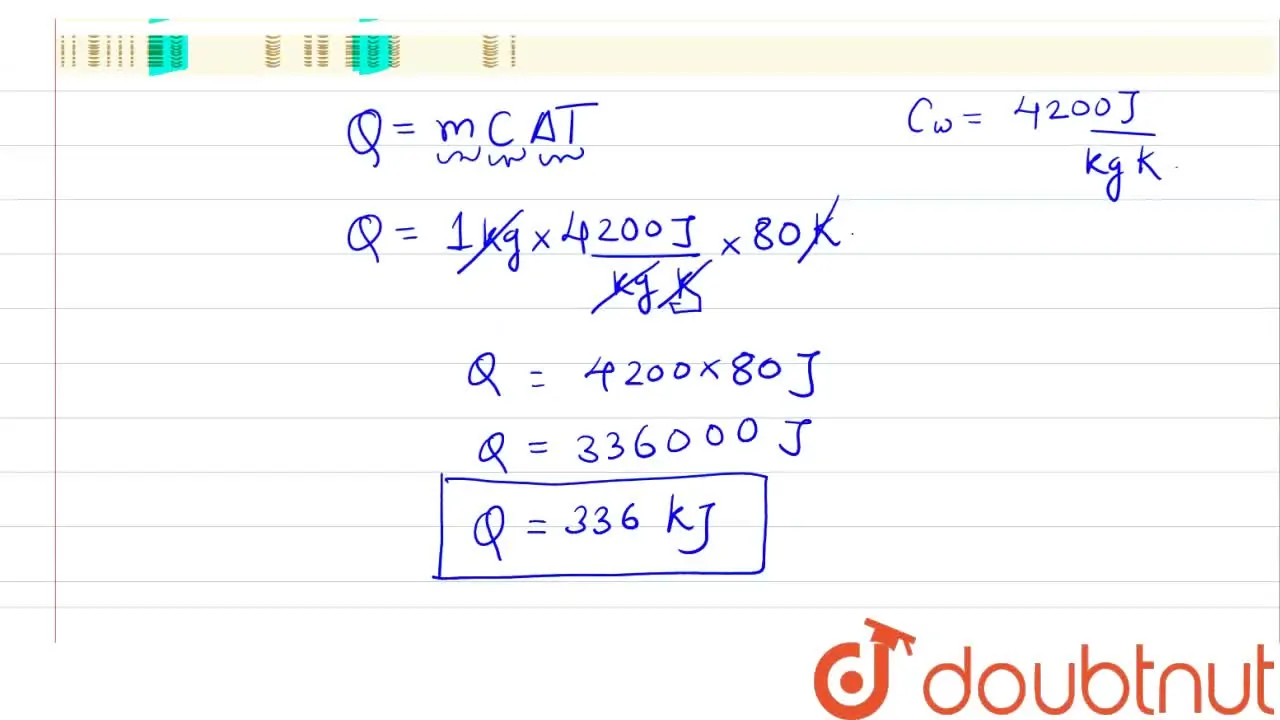 Q = m C ΔT
C_w = 4200 J / kg K
Q = 1 kg × 4200 J / kg K × 80 K
Q = 4200 × 80 J
Q = 336000 J
Q = 336 kJ
doubtnut